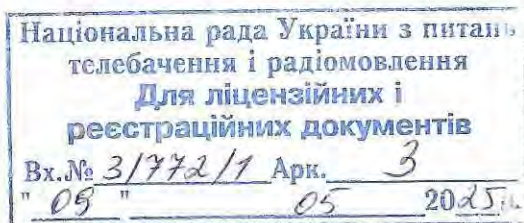 Національна рада України з питань
телебачення і радіомовлення
Для ліцензійних і
реєстраційних документів
Вх.№ 3/772/1 Арк. 3
" 09 " 05 2025р.